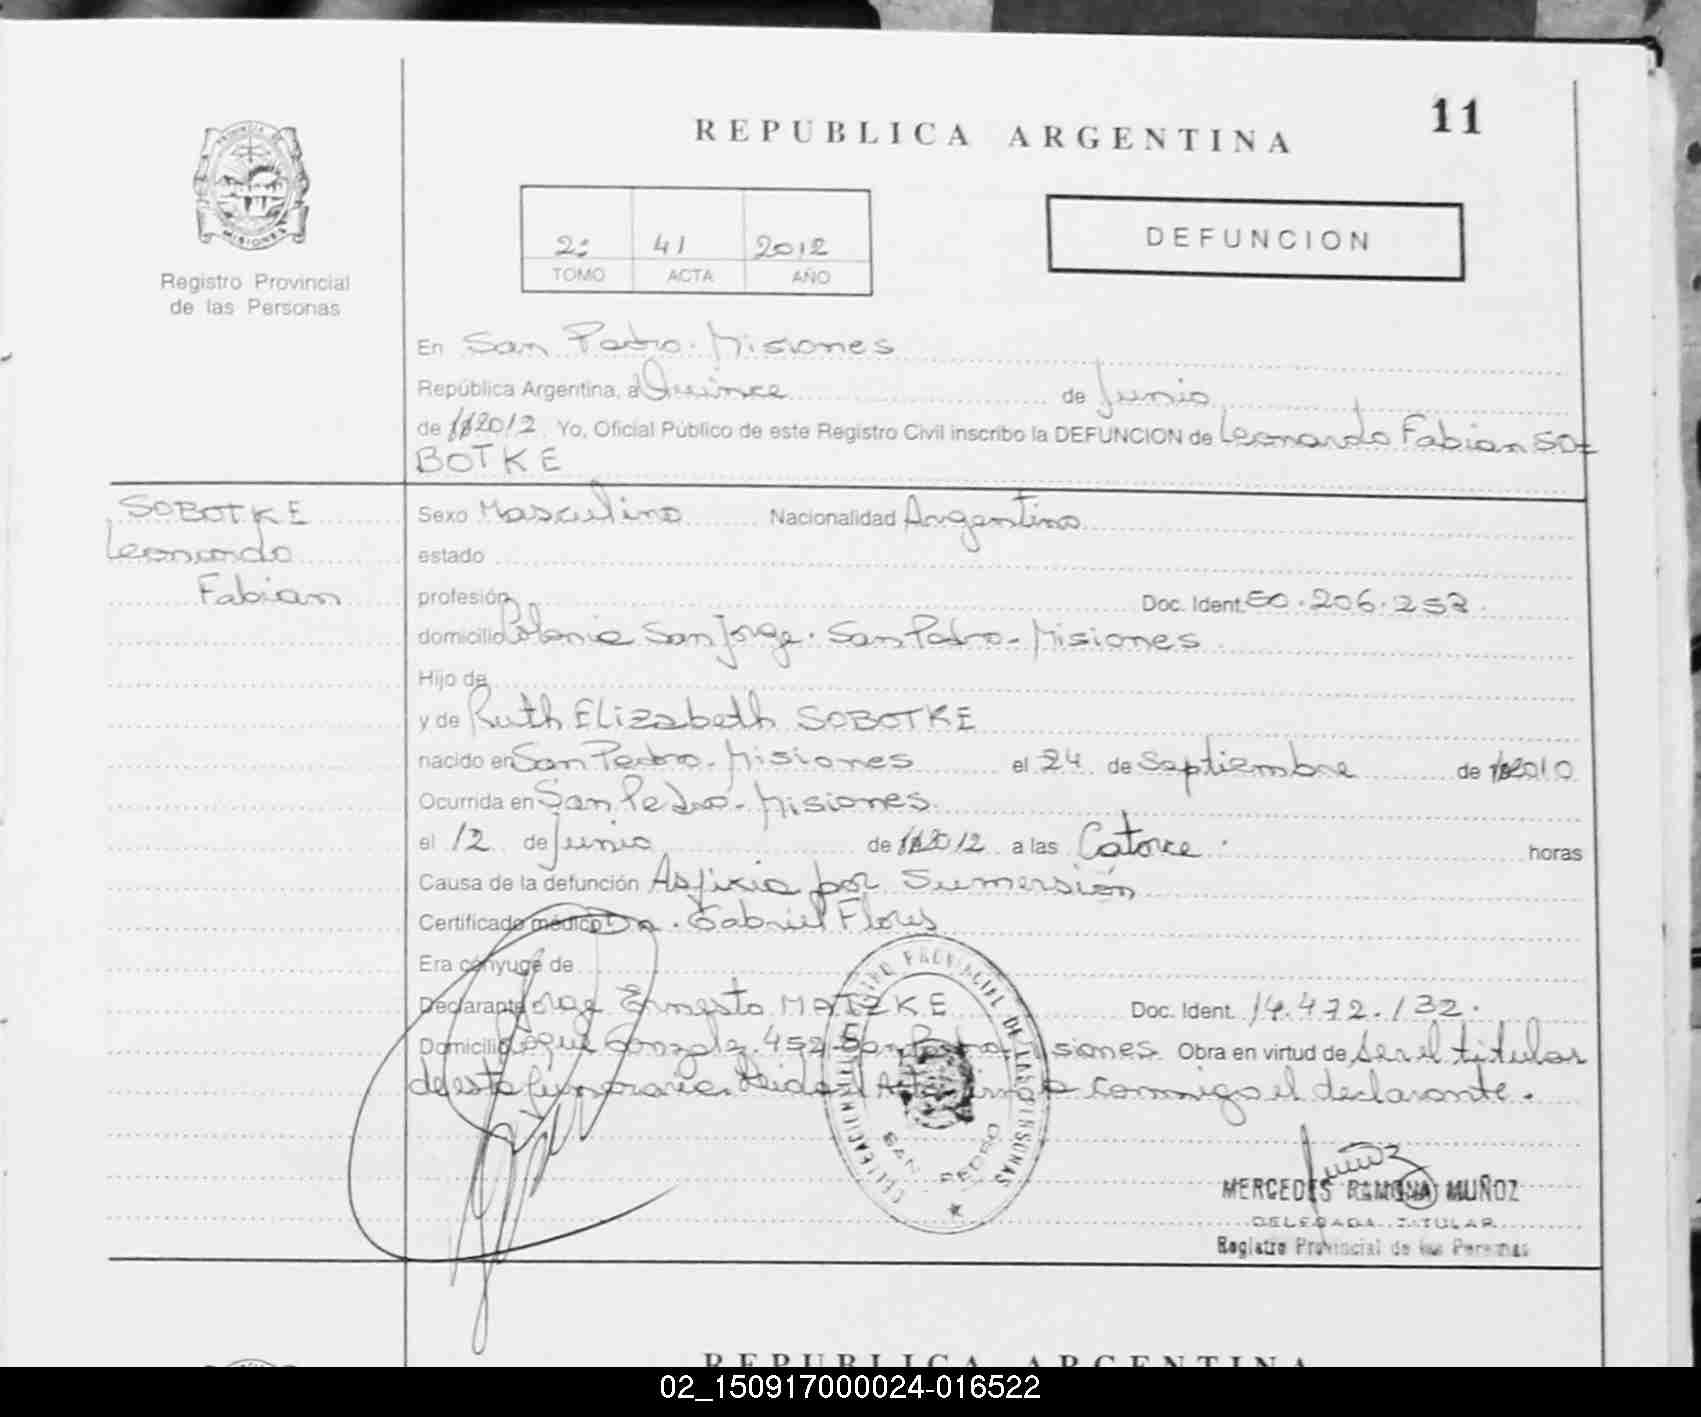 11
REPUBLICA ARGENTINA
MISIONES
Registro Provincial
de las Personas
2: 41 2012
TOMO ACTA AÑO
DEFUNCION
En San Pedro. Misiones
República Argentina, a Quince de Junio
de 2012 Yo, Oficial Público de este Registro Civil inscribo la DEFUNCION de Leonardo Fabian SO=
BOTKE
SOBOTKE
Leonardo
Fabian
Sexo Masculino Nacionalidad Argentino
estado
profesión Doc. Ident. 50.206.253.
domicilio Colonia San Jorge. San Pedro - Misiones
Hijo de
y de Ruth Elizabeth SOBOTKE
nacido en San Pedro. Misiones el 24 de Septiembre de 2010
Ocurrida en San Pedro - Misiones.
el 12 de Junio de 2012 a las Catorce. horas
Causa de la defunción Asfixia por Sumersión
Certificado médico Dr. Gabriel Flores
Era cónyuge de
Declarante Jorge Ernesto MATZKE Doc. Ident. 14.472.132.
Domicilio Roque Gonzalz. 452 San Pedro Misiones. Obra en virtud de ser el titular
de esta funeraria. Leida el Acta firma conmigo el declarante.
REGISTRO PROVINCIAL DE LAS PERSONAS
SAN PEDRO
MERCEDES RAMONA MUÑOZ
DELEGADA TITULAR
Registro Provincial de las Personas
REPUBLICA ARGENTINA
02_150917000024-016522